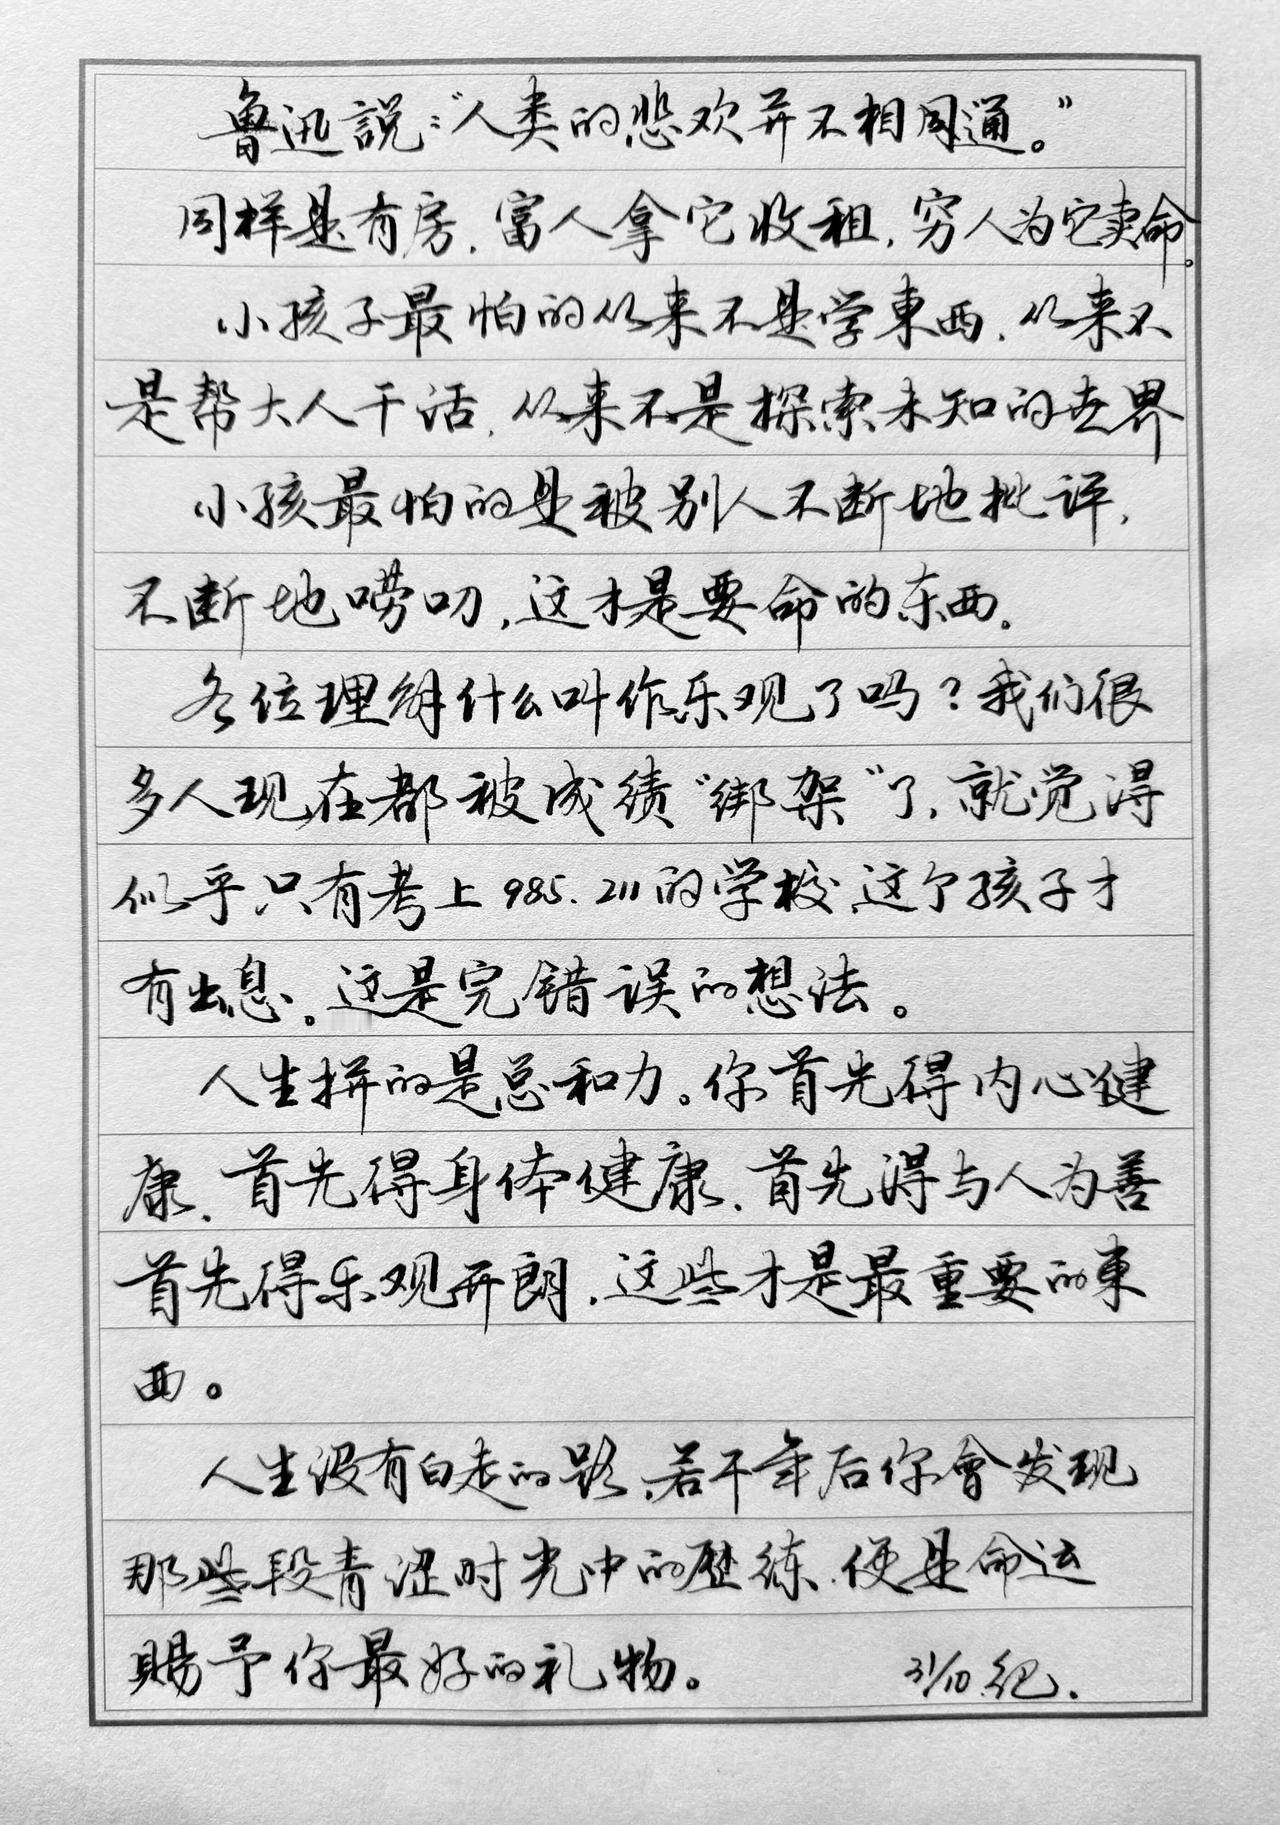 魯迅説：“人类的悲欢并不相同通。”
同样是有房，富人拿它收租，穷人为它卖命。
小孩子最怕的从来不是学東西，从来不
是帮大人干活，从来不是探索未知的世界
小孩最怕的是被别人不断地批评，
不断地唠叨，这才是要命的东西。
各位理解什么叫作乐观了吗？我们很
多人现在都被成绩“绑架”了，就觉得
似乎只有考上985.211的学校，这个孩子才
有出息。这是完错误的想法。
人生拼的是总和力。你首先得内心健
康，首先得身体健康，首先得与人为善
首先得乐观开朗，这些才是最重要的東
西。
人生没有白走的路，若干年后你會发现
那些段青涩时光中的歷练，便是命运
賜予你最好的礼物。 31/10 纪.